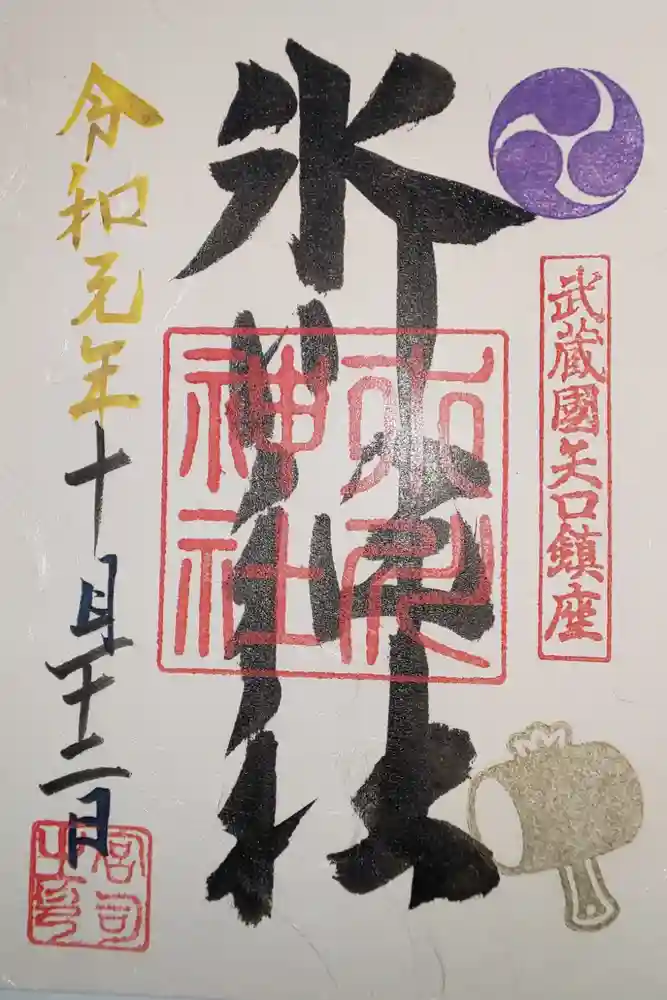 武蔵國矢口鎮座
氷川神社
神社
令和元年十月二十二日
宮司之印